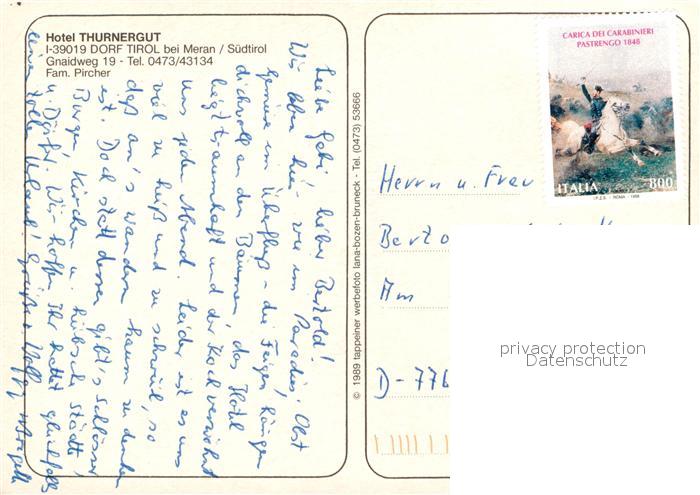 Hotel THURNERGUT
I-39019 DORF TIROL bei Meran / Südtirol
Gnaidweg 19 - Tel. 0473/43134
Fam. Pircher
Liebe Gabi, lieber Bertold!
Wir leben hier wie im Paradies; Obst
Gemüse im Überfluß - die Feigen hängen
dickvoll an den Bäumen, das Hotel
liegt traumhaft und der Koch verwöhnt
uns jeden Abend. Leider ist es uns
viel zu heiß und zu schwül, so
daß an's wandern kaum zu denken
ist. Doch statt dessen gibt's Schlösser
Burgen Kirchen u. hübsche Städte
u. Dörfer. Wir hoffen Ihr hattet gleichfalls
einen tollen Urlaub! Grüße
© 1989 tappeiner werbefoto lana-bozen-bruneck - Tel. (0473) 53666
CARICA DEI CARABINIERI
PASTRENGO 1848
ITALIA 800
I.P.Z.S. - ROMA - 1998
Herrn u. Frau
Berto
Am
D-776
privacy protection
Datenschutz